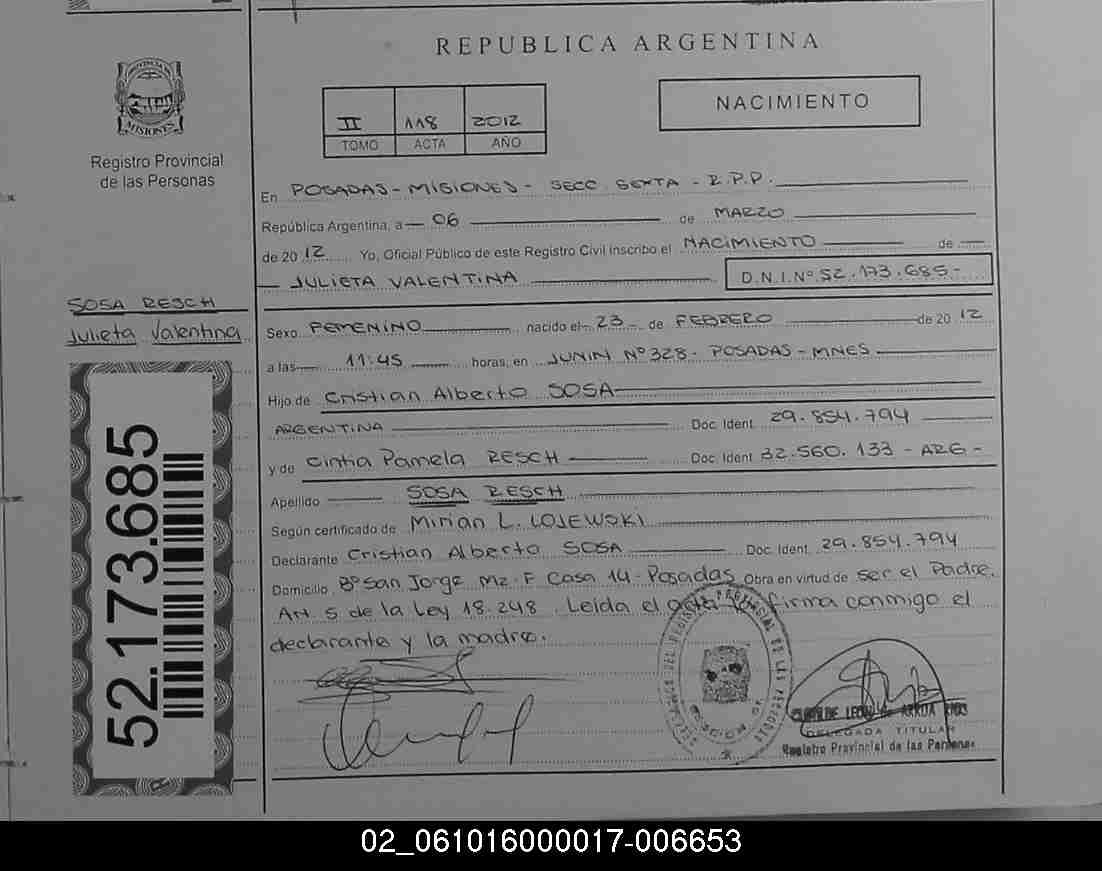 REPUBLICA ARGENTINA
PROVINCIA DE
MISIONES
Registro Provincial
de las Personas
II 118 2012
TOMO ACTA AÑO
NACIMIENTO
En POSADAS - MISIONES - SECC. SEXTA - R.P.P.
República Argentina, a 06 de MARZO
de 2012 Yo, Oficial Público de este Registro Civil inscribo el NACIMIENTO de
JULIETA VALENTINA D.N.I.Nº 52.173.685-
SOSA RESCH
Julieta Valentina
Sexo FEMENINO nacido el - 23 - de FEBRERO de 2012
a las 11:45 horas, en JUNIN Nº 328 - POSADAS - MNES
Hijo de Cristian Alberto SOSA
ARGENTINA Doc. Ident. 29.854.794
y de Cintia Pamela RESCH Doc. Ident. 32.560.133 - ARG -
Apellido SOSA RESCH
Según certificado de Mirian L. LOJEWSKI
Declarante Cristian Alberto SOSA Doc. Ident. 29.854.794
Domicilio Bº San Jorge Mz. F Casa 14 - Posadas Obra en virtud de ser el Padre.
Art. 5 de la Ley 18.248. Leída el acta la firma conmigo el
declarante y la madre.
52.173.685
DELEGADA TITULAR
Registro Provincial de las Personas
02_061016000017-006653